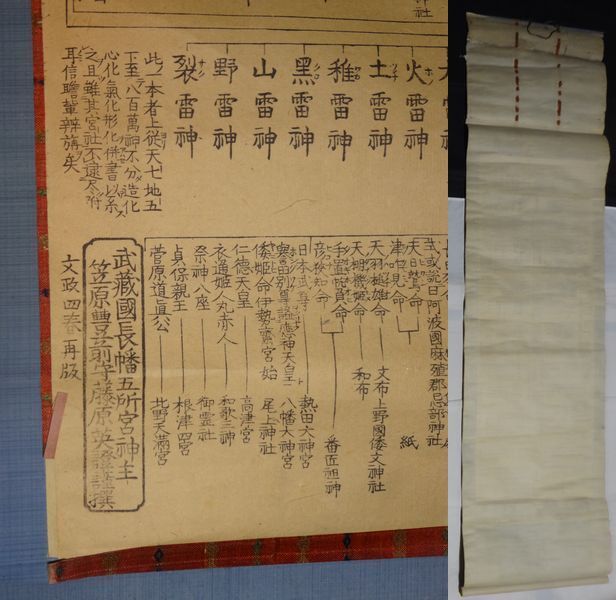 神社
火雷神
土雷神
稚雷神
黑雷神
山雷神
野雷神
裂雷神
此ノ一本者上從天七地五
下至八百萬神不分造化
心化氣化形化併書以系
之且雖其宮社不逮尽附
耳信瞻輩辨旃矣
或説曰阿波國麻殖郡忌部神社
天日鷲命
津咋見命
紙
天羽槌雄命 文布上野國倭文神社
天棚機姫命 和布
手置帆負命
彦狭知命
番匠祖神
日本武尊 熱田大神宮
譽田別尊謚應神天皇 八幡大神宮
倭姫命伊勢齋宮始 尾上神社
仁德天皇 高津宮
衣通姫人丸赤人 和歌三神
祭神八座 御霊社
貞保親王 根津宮
菅原道真公 北野天満宮
武藏國長幡五所宮神主
笠原豊前守藤原英 謹撰
文政四春再版